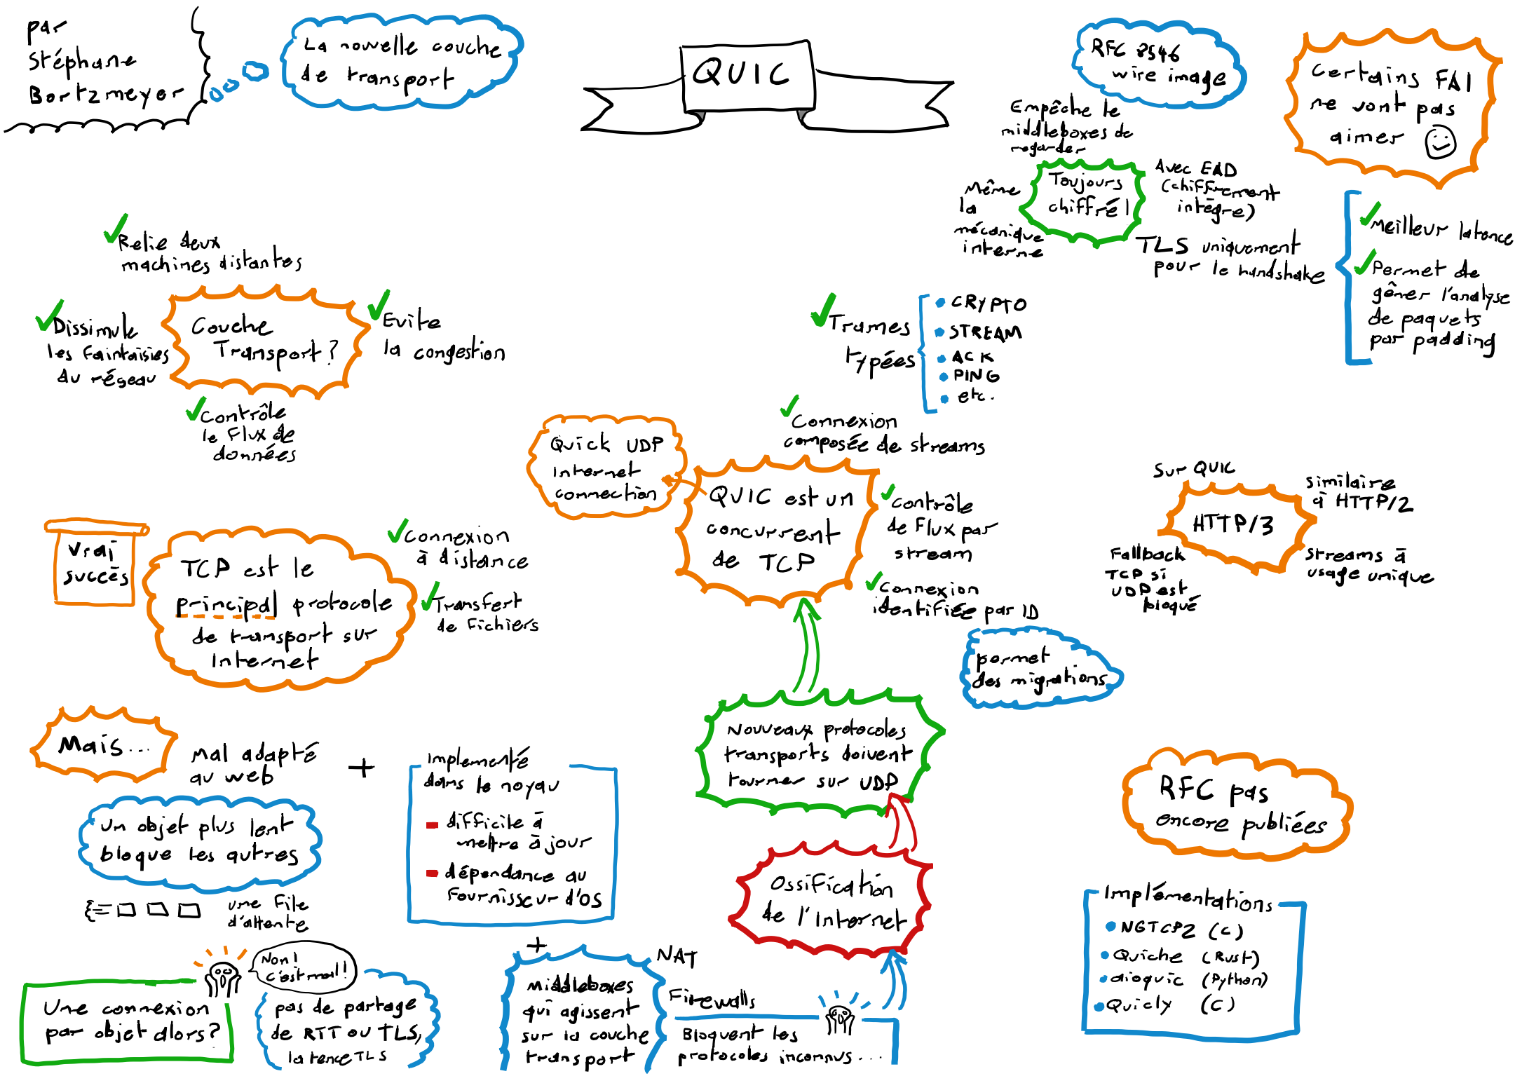 par
Stéphane
Bortzmeyer
La nouvelle couche
de transport
QUIC
RFC 8546
wire image
Certains FAI
ne vont pas
aimer
Empêche le
middleboxes de
regarder
Toujours
chiffré!
Même
la
mécanique
interne
Avec EAD
(chiffrement
intègre)
TLS uniquement
pour le handshake
Meilleur latence
Permet de
gêner l'analyse
de paquets
par padding
Relie deux
machines distantes
Dissimule
les faintaisies
du réseau
Couche
Transport?
Evite
la congestion
Contrôle
le flux de
données
Trames
typées
CRYPTO
STREAM
ACK
PING
etc.
Connexion
composée de streams
Quick UDP
Internet
connection
QUIC est un
concurrent
de TCP
contrôle
de flux par
stream
Connexion
identifiée par ID
permet
des migrations
Sur QUIC
HTTP/3
similaire
à HTTP/2
streams à
usage unique
Fallback
TCP si
UDP est
bloqué
Vrai
succès
TCP est le
principal protocole
de transport sur
Internet
Connexion
à distance
Transfert
de fichiers
Mais...
Mal adapté
au web
+
Un objet plus lent
bloque les autres
une file
d'attente
Implementé
dans le noyau
difficile à
mettre à jour
dépendance au
fournisseur d'OS
+
Non!
c'est mal!
Une connexion
par objet alors?
pas de partage
de RTT ou TLS,
latence TLS
Middleboxes
qui agissent
sur la couche
transport
NAT
Firewalls
Bloquent les
protocoles inconnus...
Ossification
de l'Internet
Nouveaux protocoles
transports doivent
tourner sur UDP
RFC pas
encore publiées
Implémentations
NGTCP2 (C)
Quiche (Rust)
aioquic (Python)
Quicly (C)